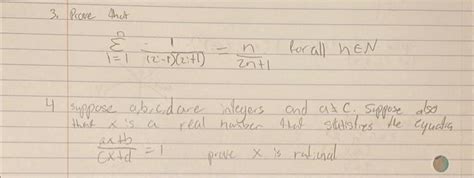 3. Prove that
n
Σ 1/(2i-1)(2i+1) = n/2n+1 for all n∈N
i=1
4 suppose a,b,c,d are integers and a≠c. Suppose also
that x is a real number that statisfies the equation
ax+b/cx+d = 1 prove x is rational